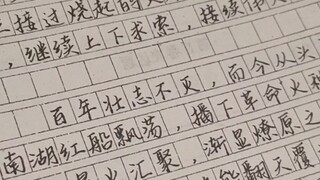 接过烧起的
，继续上下求索，接续
百年壮志不灭，而今从头
南湖红船飘荡，播下革命火
汇聚，渐显燎原之
能翻天覆